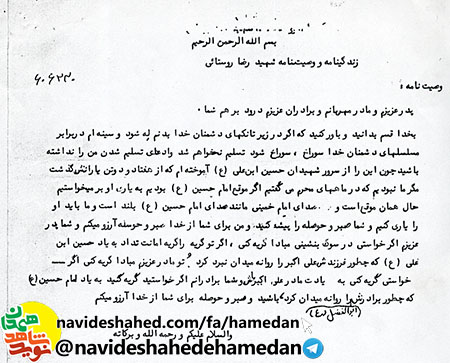 بسم الله الرحمن الرحیم
زندگینامه و وصیتنامه شهید رضا روستائی
۶۰۶۲۳۰
وصیت نامه :
پدر عزیزم و مادر مهربانم و برادران عزیزم درود بر هم شما .
بخدا قسم بدانید و باور کنید که اگر در زیر تانکهای دشمنان خدا بدنم له شود و سینه ام در برابر
مسلسلهای دشمنان خدا سوراخ ، سوراخ شود تسلیم نخواهم شد وادعای تسلیم شدن من را نداشته
باشید چون این را از سرور شهیدان حسین ابن علی (ع) آموخته ام که از هفتاد و دو تن یارانش گذشت
مگر ما نبودیم که در ماههای محرم می گفتیم اگر موقع امام حسین (ع) بودیم به یاری او برمیخواستیم
حال همان موقع است و ... صدای امام خمینی مانند صدای امام حسین (ع) بلند است و ما باید او
را یاری کنیم و شما صبر و حوصله را پیشه کنید . و من برای شما از خدا صبر و حوصله آرزو میکنم و شما پدر
عزیزم اگر خواستی در سوک بنشینی مبادا گریه کنی ، اگر تو گریه را گریه امانت نداد به یاد حسین ابن
علی (ع) که چطور فرزندش علی اکبر را روانه میدان نبرد کرد . و تو مادر عزیزم مبادا گریه کنی اگر
خواستی گریه کنی به یادت مادر علی اکبر باش و شما برادرانم اگر خواستید گریه کنید به یاد امام حسین (ع)
که چطور برادرش را روانه میدان کرد باشید و صبر و حوصله برای شما از خدا آرزو میکنم
ابوالفضل (ع)
والسلام علیکم و رحمه الله و برکاته
نوید شاهد
همدان
navideshahed.com/fa/hamedan
@navideshahedehamedan